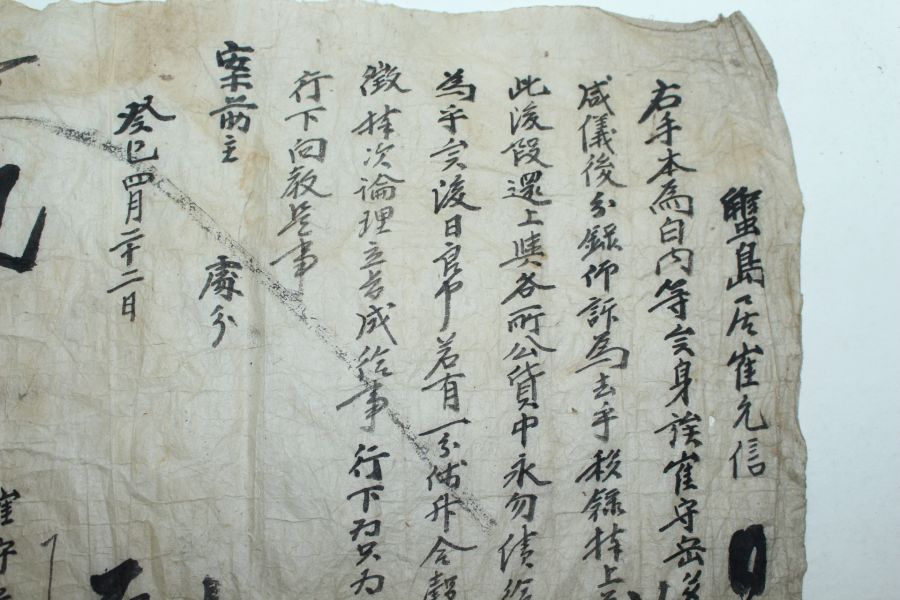 蟹島居崔允信
右手本為白内等矣身誒崔守岳
咸儀後分錄仰訴為去乎移錄捧上
此後段還上與各所公貨中永勿債給
為乎矣後日良中若有一分
徵捧次論理立旨成給事行下為只為
行下向教是事
案前主 處分
癸巳四月二十二日
崔守